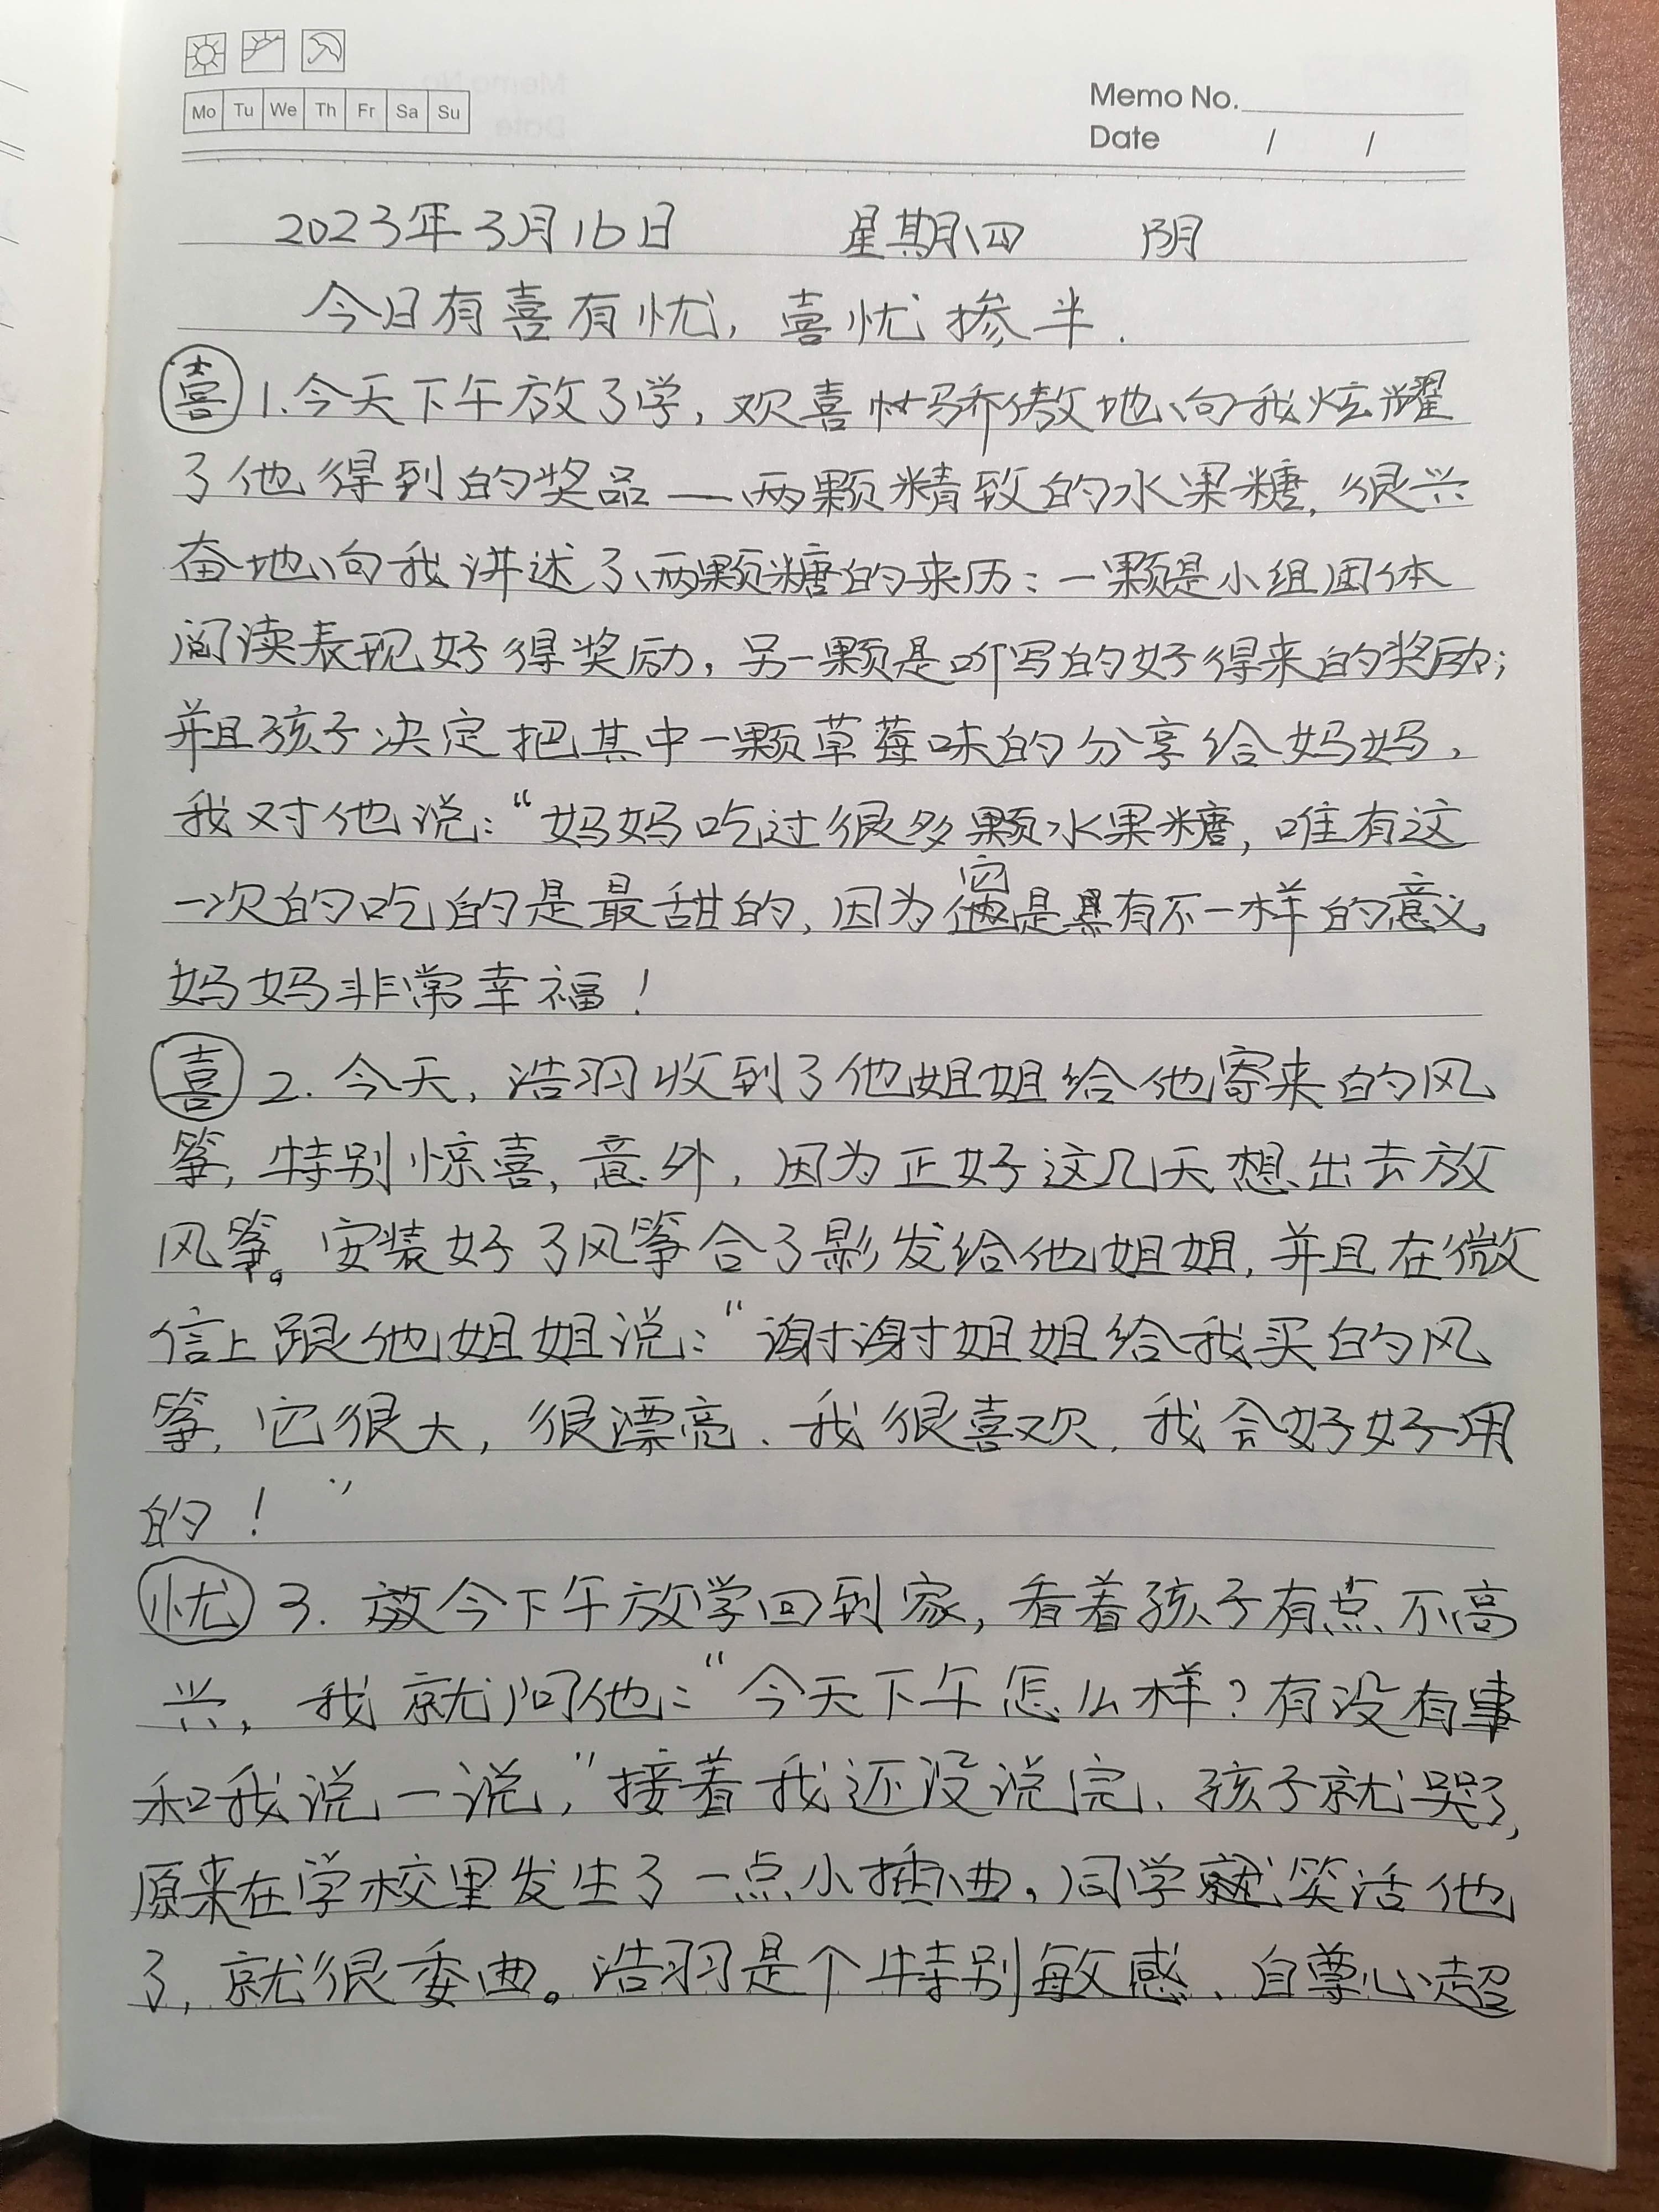 Mo Tu We Th Fr Sa Su
Memo No.
Date / /
2023年3月16日 星期四 阴
今日有喜有忧，喜忧掺半.
喜 1.今天下午放了学，欢喜骄傲地向我炫耀
了他得到的奖品—两颗精致的水果糖，很兴
奋地向我讲述了两颗糖的来历：一颗是小组团体
阅读表现好得奖励，另一颗是听写的好得来的奖励；
并且孩子决定把其中一颗草莓味的分享给妈妈，
我对他说：“妈妈吃过很多颗水果糖，唯有这
一次的吃的是最甜的，因为它是具有不一样的意义。
妈妈非常幸福！
喜 2. 今天，浩羽收到了他姐姐给他寄来的风
筝，特别惊喜，意外，因为正好这几天想出去放
风筝。安装好了风筝合了影发给他姐姐，并且在微
信上跟他姐姐说：“谢谢姐姐给我买的风
筝，它很大，很漂亮、我很喜欢，我会好好用
的！”
忧 3. 今下午放学回到家，看着孩子有点不高
兴，我就问他：“今天下午怎么样？有没有事
和我说一说，”接着我还没说完、孩子就哭了，
原来在学校里发生了一点小插曲，同学就笑话他
了，就很委曲。浩羽是个特别敏感、自尊心超